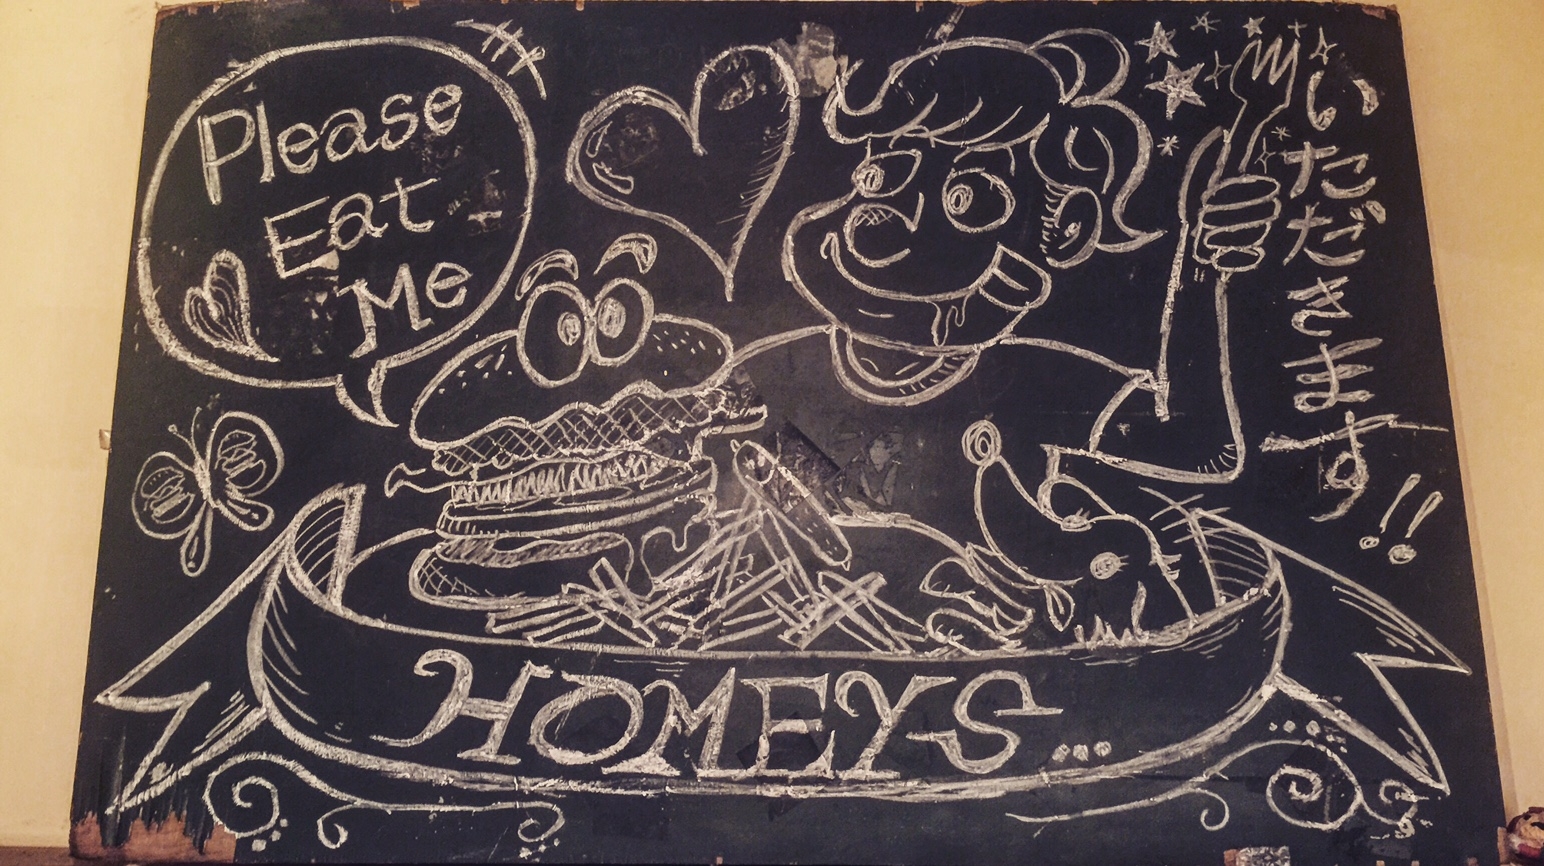 Please
Eat
Me
いただきます!!
HOMEYS...